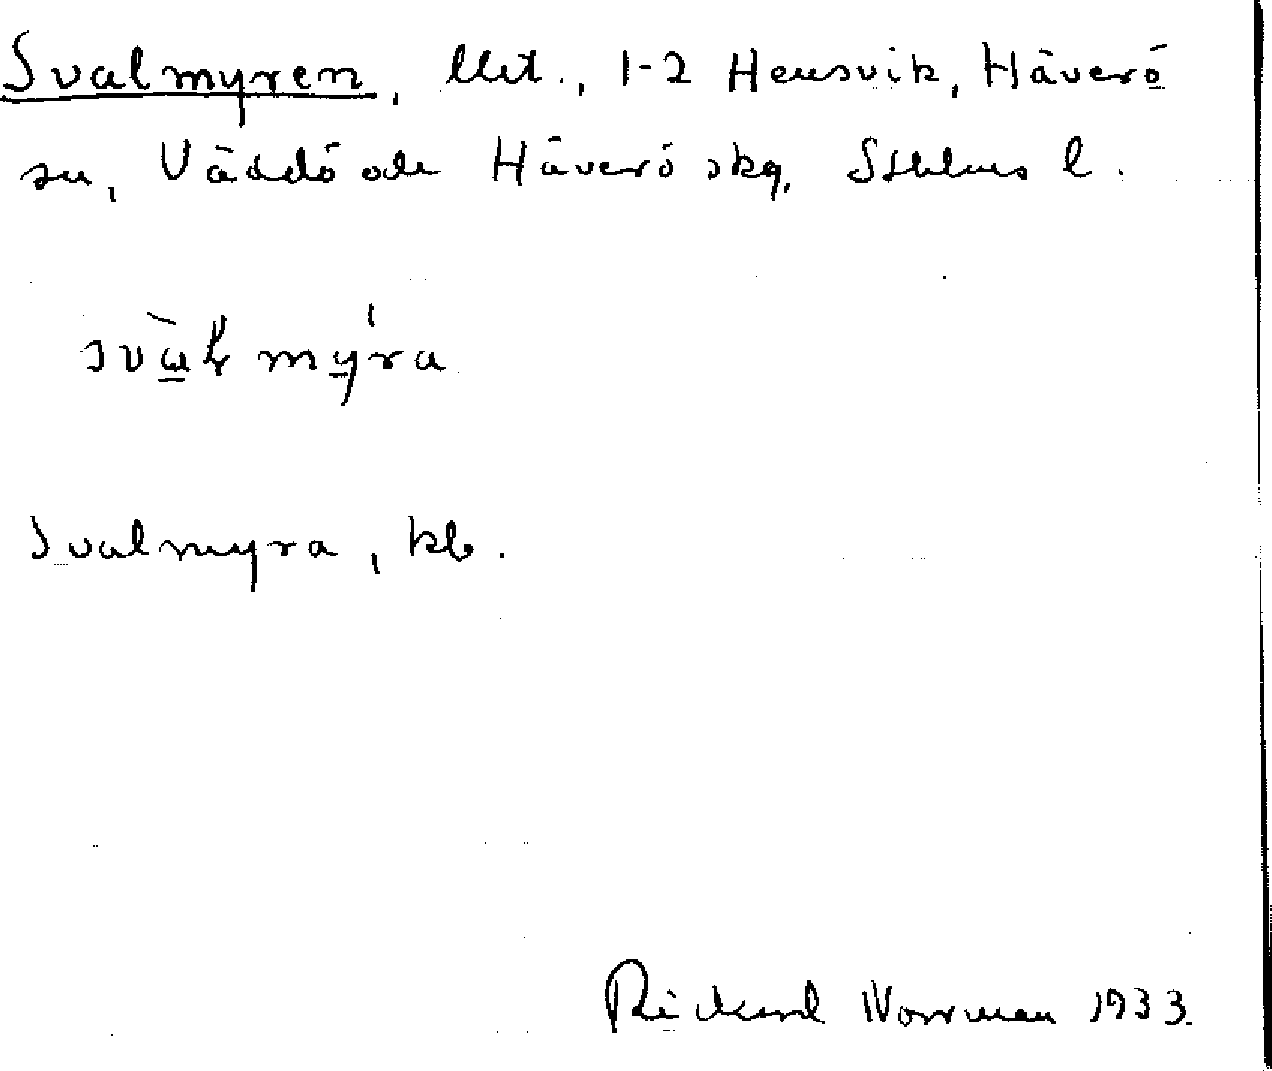 Svalmyren, Utt., 1-2 Hensvik, Häverö
sn, Väddö och Häverö skg, Sthlms l.
Svalmyra, kb.
Rickard Norrman 1933.